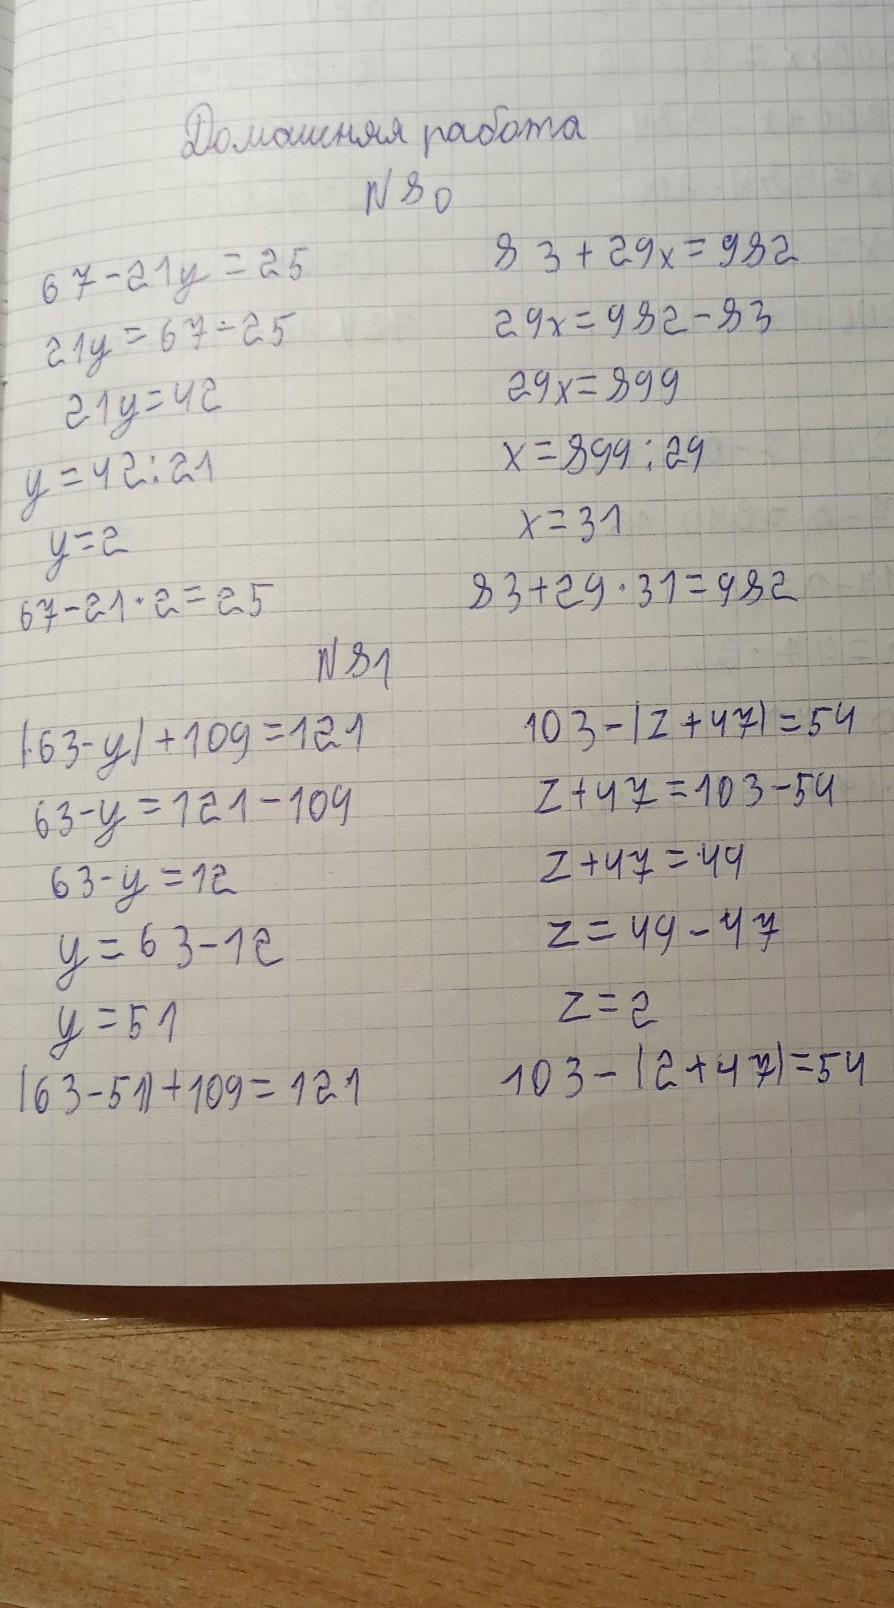 Домашняя работа
N 80
67-21y=25
21y=67-25
21y=42
y=42:21
y=2
67-21·2=25
83+29x=982
29x=982-83
29x=899
x=899:29
x=31
83+29·31=982
N 81
(63-y)+109=121
63-y=121-109
63-y=12
y=63-12
y=51
(63-51)+109=121
103-(z+47)=54
z+47=103-54
z+47=49
z=49-47
z=2
103-(2+47)=54